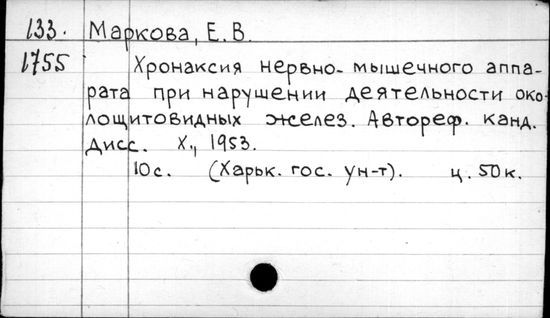 133. Маркова, Е. В.
1755 Хронаксия нервно-мышечного аппа-
рата при нарушении деятельности око-
лощитовидных желез. Автореф. канд.
дисс. Х., 1953.
10с. (Харьк. гос. ун-т). ц. 50к.